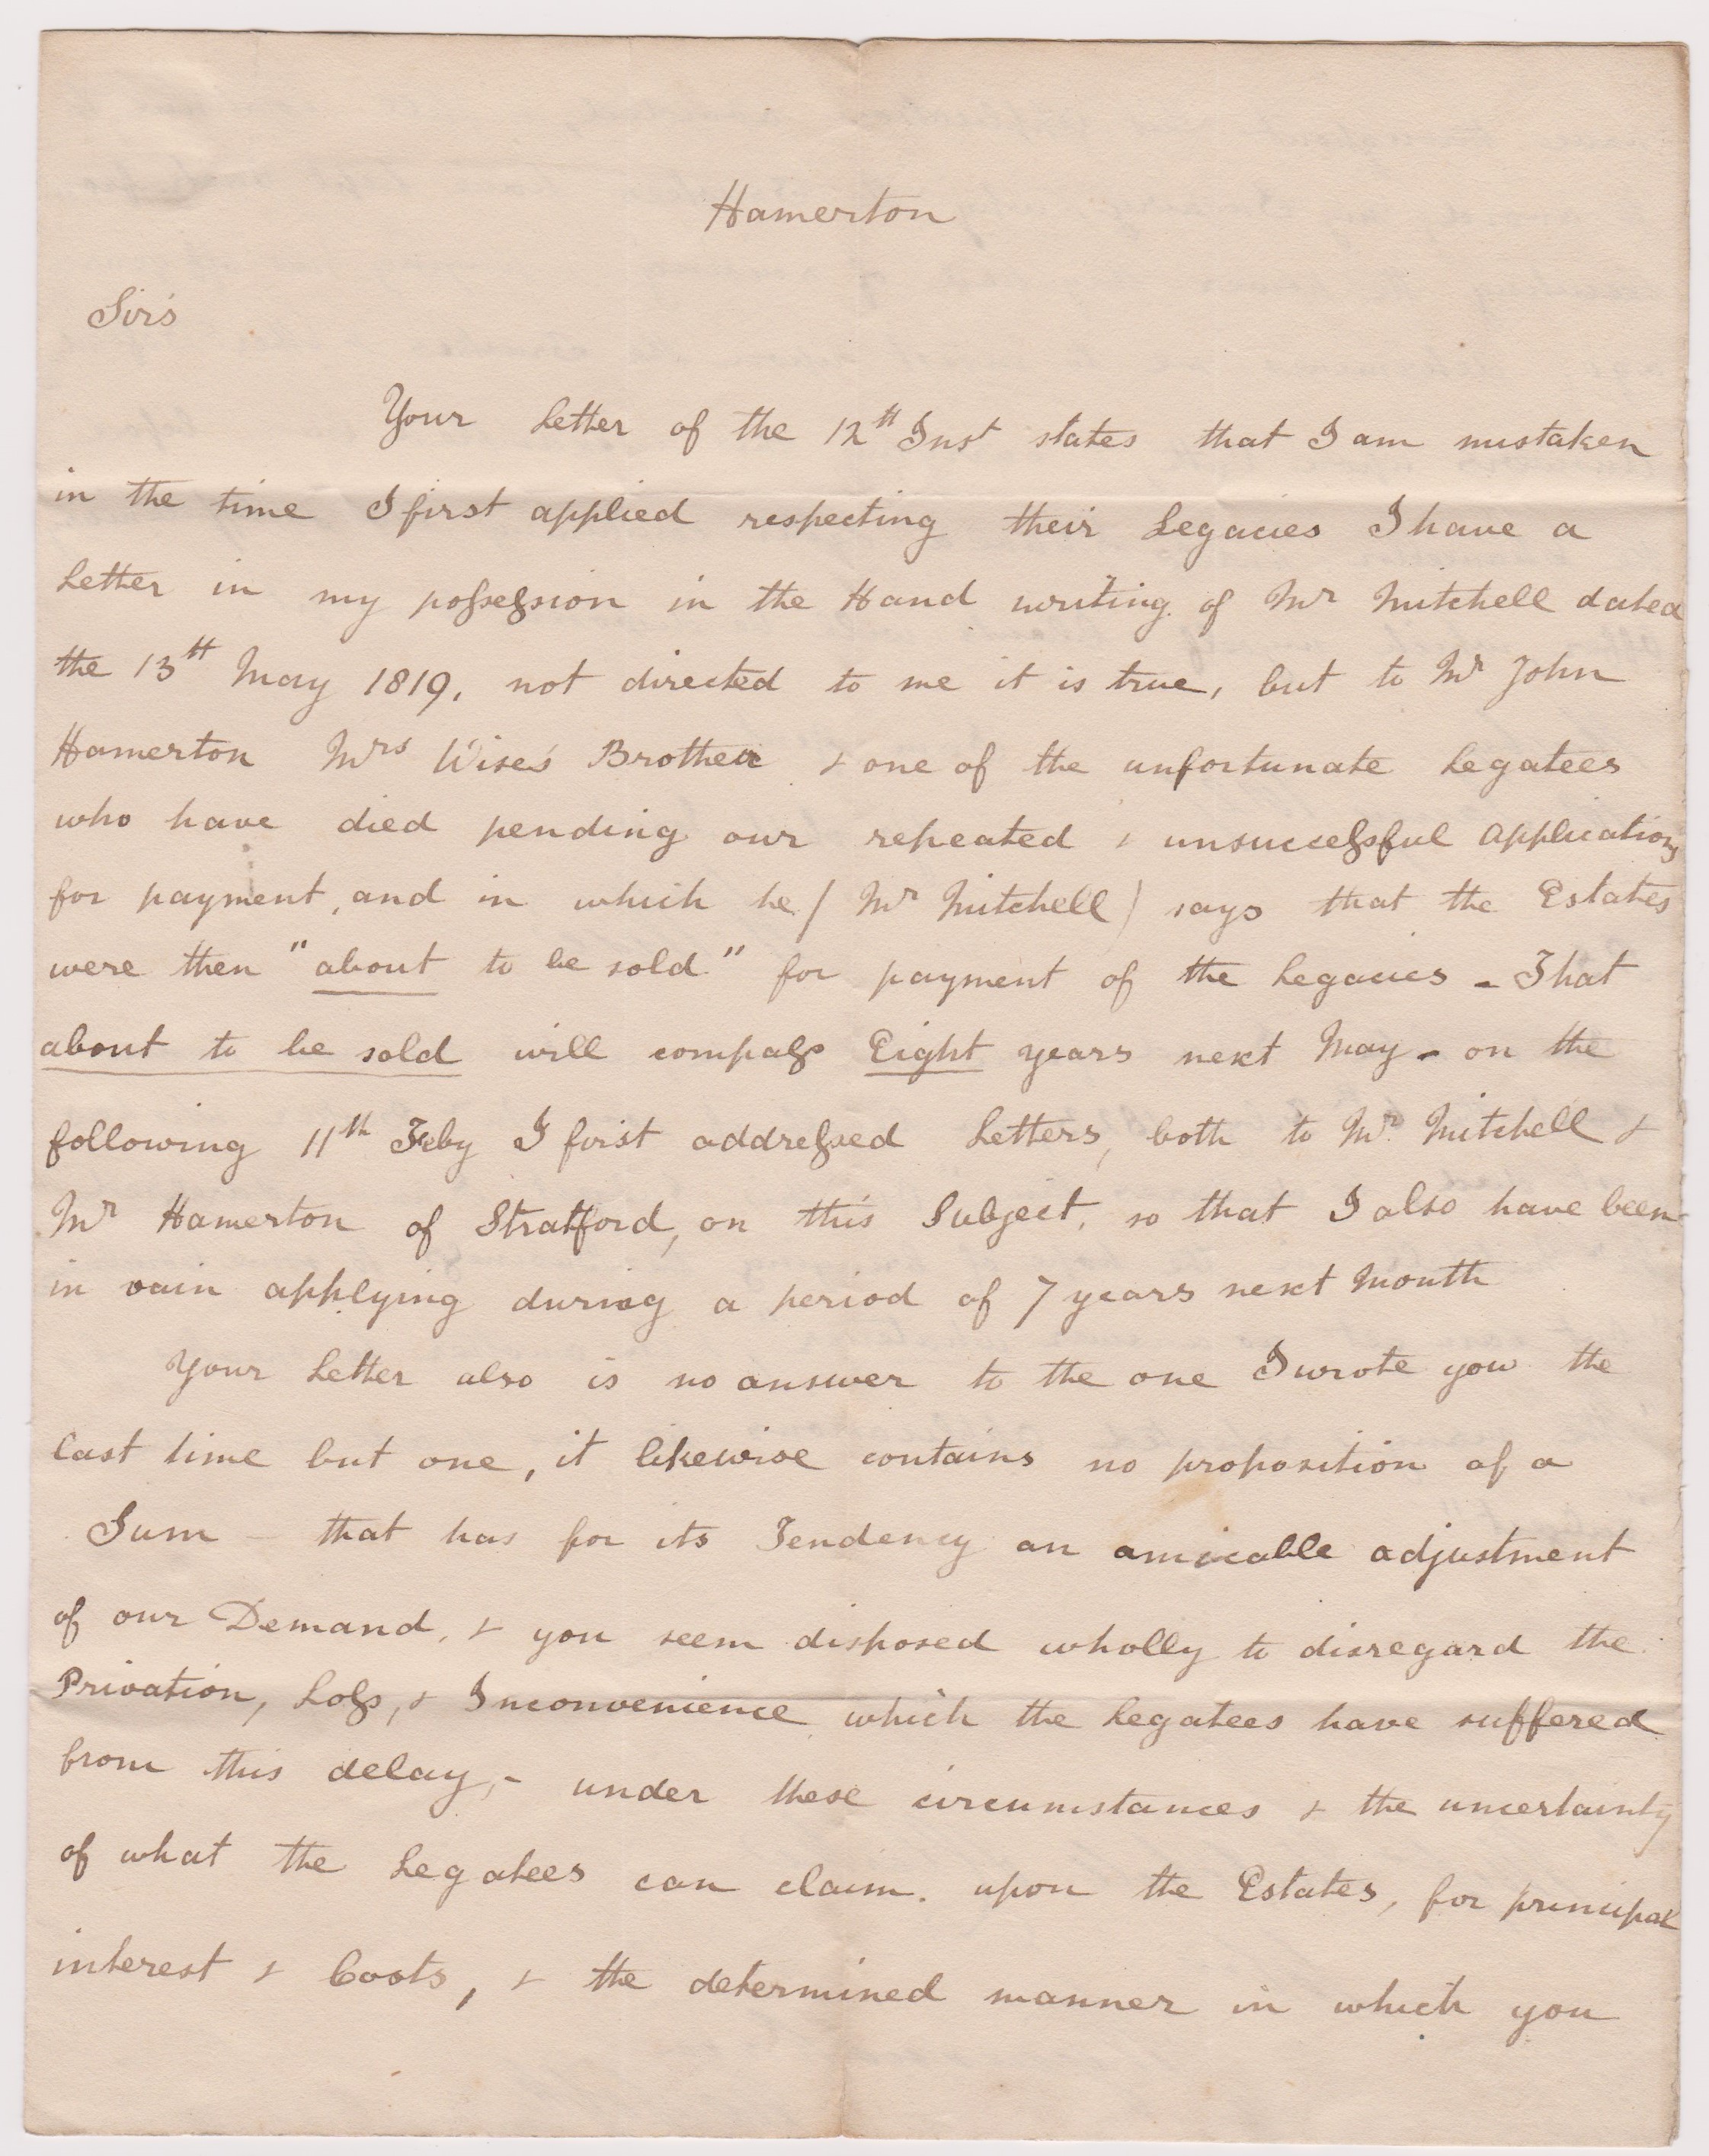 Hamerton
Sirs
Your Letter of the 12th Inst states that I am mistaken
in the time I first applied respecting their Legacies I have a
Letter in my possession in the Hand writing of Mr Mitchell dated
the 13th May 1819, not directed to me it is true, but to Mr John
Hamerton Mrs Wise's Brother & one of the unfortunate Legatees
who have died pending our repeated & unsuccessful applications
for payment, and in which he (Mr Mitchell) says that the Estates
were then "about to be sold" for payment of the Legacies - That
about to be sold will compass Eight years next May - on the
following 11th Feby I first addressed Letters, both to Mr Mitchell &
Mr Hamerton of Stratford, on this Subject, so that I also have been
in vain applying during a period of 7 years next Month
Your Letter also is no answer to the one I wrote you the
last time but one, it likewise contains no proposition of a
Sum - that has for its Tendency an amicable adjustment
of our Demand, & you seem disposed wholly to disregard the
Privation, Loss, & Inconvenience which the Legatees have suffered
from this delay, - under these circumstances & the uncertainty
of what the Legatees can claim. upon the Estates, for principal
interest & Costs, & the determined manner in which you